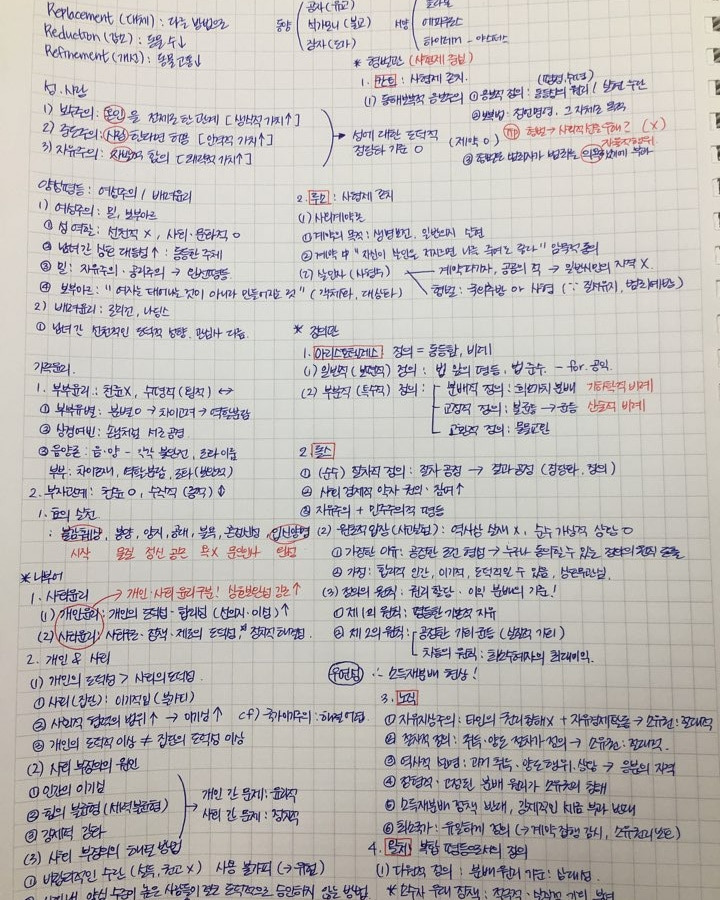 Replacement (대체) : 다른 방법으로
Reduction (감소) : 동물 수↓
Refinement (개선) : 동물고통↓
성·사랑
1) 보수주의 : 혼인 을 전제로 한 관계 [생식적 가치↑]
2) 중도주의 : 사랑 한다면 허용 [인격적 가치↑]
3) 자유주의 : 자발적 합의 [쾌락적 가치↑]
→ 성에 대한 도덕적 정당화 기준 ○
양성평등 : 여성주의 / 배려윤리
1) 여성주의 : 밀, 보부아르
① 성 역할 : 선천적 X, 사회·문화적 ○
② 남녀 간 상호 대등성↑ : 동등한 주체
③ 밀 : 자유주의·공리주의 → 인권평등
④ 보부아르 : "여자는 태어나는 것이 아니라 만들어지는 것" (객체화, 대상화)
2) 배려윤리 : 길리건, 나딩스
① 남녀 간 선천적인 도덕적 성향, 관심사 다름
가족윤리
1. 부부윤리 : 천륜X, 수평적 (횡적) ↔
① 부부유별 : 분별○ → 차이존중 → 역할분담
② 상경여빈 : 손님처럼 서로 공경
③ 음양론 : 음·양 - 각각 불완전, 조화이룸
부부 : 차이존재, 역할분담, 조화 (보완적)
2. 부자관계 : 천륜 ○, 수직적 (종적) ↕
1. 효의 실천
: 불감훼상, 봉양, 양지, 공대, 불욕, 혼정신성, 입신양명
시작 물질 정신 공손 욕X 문안인사 완성
* 니부어
1. 사회윤리 → 개인·사회 윤리구분! 상호보완성 강조↑
(1) 개인윤리 : 개인의 도덕성·합리성 (선의지·이성)↑
(2) 사회윤리 : 사회구조·정책·제도의 도덕성, 정치적 강제력
2. 개인 & 사회
(1) 개인의 도덕성 > 사회의 도덕성
① 사회(집단) : 이기적임 (불가피)
② 사회적 협력의 범위↑ → 이기성↑ cf) 국가이기주의 : 해결 어려움
③ 개인의 도덕적 이상 ≠ 집단의 도덕적 이상
(2) 사회 부정의의 원인
① 인간의 이기심
② 힘의 불균형 (세력불균형)
③ 경제적 강자
→ 개인 간 문제 : 윤리적
사회 간 문제 : 정치적
(3) 사회 부정의의 해결 방법
① 비합리적인 수단 (설득, 권고 X) 사용 불가피 (→ 위험)
동양 공자(유교)
석가모니(불교)
장자(도가)
서양
에피쿠로스
하이데거 - 야스퍼스
* 형벌관 (사형제 중심)
1. 칸트 : 사형제 존치.
(1) 동해보복적 응보주의 ① 응보적 정의 : 동등성의 원리 / 실현 수단
(평형, 수평)
② 형벌 : 정언명령, 그 자체로 목적
(제약 ○) TIP 형벌 → 사회적 선을 위해? (X)
2. 루소 : 사형제 존치
(1) 사회계약론
① 계약의 목적 : 생명보전, 일반의지 실현
② 계약 中 "자신이 살인을 저지르면 나를 죽여도 좋다" 암묵적 동의
(2) 살인자 (사형수)
계약파기자, 공공의 적 → 일반시민의 자격 X.
형벌 : 국외추방 or 사형 (∵ 질서유지, 범죄예방)
* 정의관
1. 아리스토텔레스 정의 = 동등함, 비례
(1) 일반적 (보편적) 정의 : 법 앞의 평등, 법 준수. - for. 공익
(2) 부분적 (특수적) 정의 :
분배적 정의 : 희소가치 분배 기하학적 비례
교정적 정의 : 불균등 → 균등 산술적 비례
교환적 정의 : 물물교환
2. 롤스
① (순수) 절차적 정의 : 절차 공정 → 결과공정 (정당화, 정의)
② 사회 경제적 약자 권익·참여↑
③ 자유주의 + 민주주의적 평등
(2) 원초적 입장 (사고실험) : 역사상 실재 X, 순수 가상적 상황 ○
① 가정한 이유 : 공정한 조건 형성 → 누구나 동의할 수 있는 정의의 원칙 도출
② 가정 : 합리적 인간, 이기적, 도덕적일 수 있음, 상호무관심.
(3) 정의의 원칙 : 권리 할당·이익 분배의 기준!
① 제 1의 원칙 : 평등한 기본적 자유
② 제 2의 원칙 :
공정한 기회균등 (실질적 기회)
차등의 원칙 : 최소수혜자의 최대이익.
우연성 ∴ 소득재분배 현상!
3. 노직
① 자유지상주의 : 타인의 권리침해X + 자유경제활동 → 소유권 : 절대적
② 절차적 정의 : 취득·양도 절차가 정의 → 소유권 : 절대적.
③ 역사적 설명 : 과거 취득·양도행위, 상황 → 응분의 자격
④ 정형적·고정된 분배 원리가 소유권의 침해
⑤ 소득재분배 정책의 반대, 강제적인 세금 부과 반대
⑥ 최소국가 : 유일하게 정의 (→ 계약 집행 감시, 소유권리보호)
4. 왈처 복합 평등으로서의 정의
(1) 다원적 정의 : 분배 원리 기준 : 상대성.